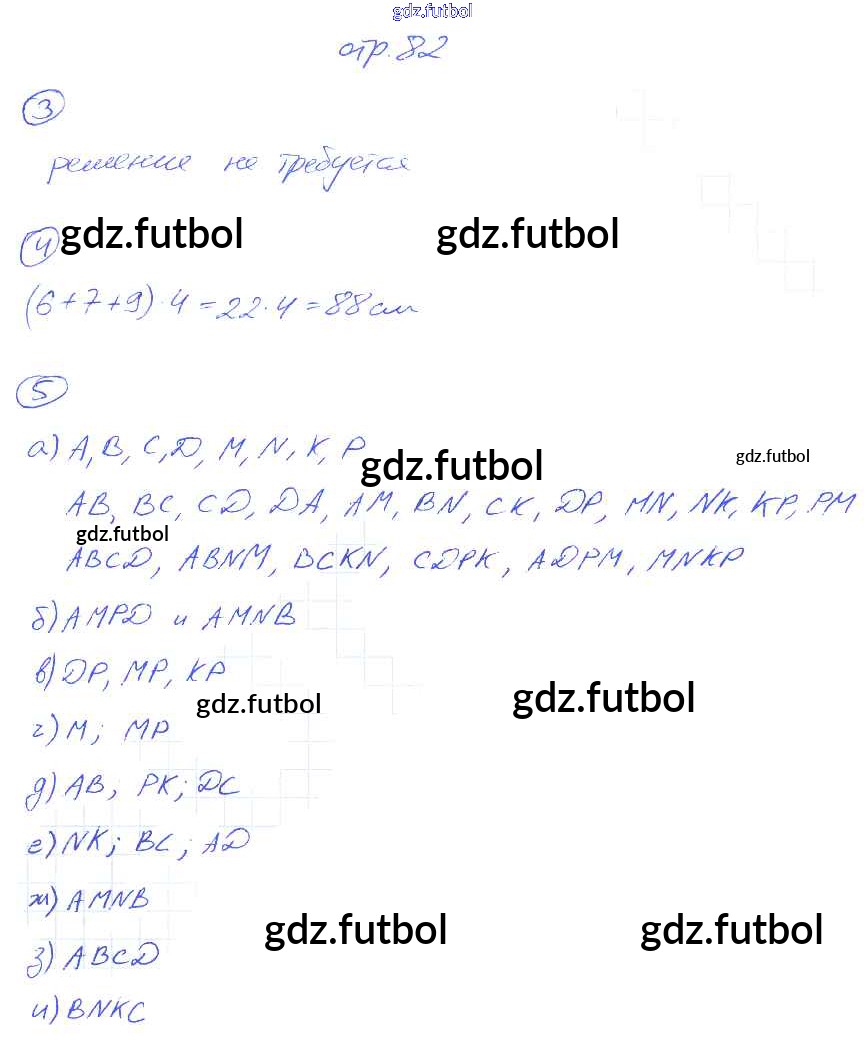 gdz.futbol
стр. 82
3
решение не требуется
4 gdz.futbol gdz.futbol
(6+7+9)·4=22·4=88 см
5
а) A, B, C, D, M, N, K, P
gdz.futbol gdz.futbol
AB, BC, CD, DA, AM, BN, CK, DP, MN, NK, KP, PM
gdz.futbol
ABCD, ABNM, BCKN, CDPK, ADPM, MNKP
б) AMPD и AMNB
в) DP, MP, KP
gdz.futbol gdz.futbol
г) M; MP
д) AB, PK; DC
е) NK; BC; AD
ж) AMNB
gdz.futbol gdz.futbol
з) ABCD
и) BNKC